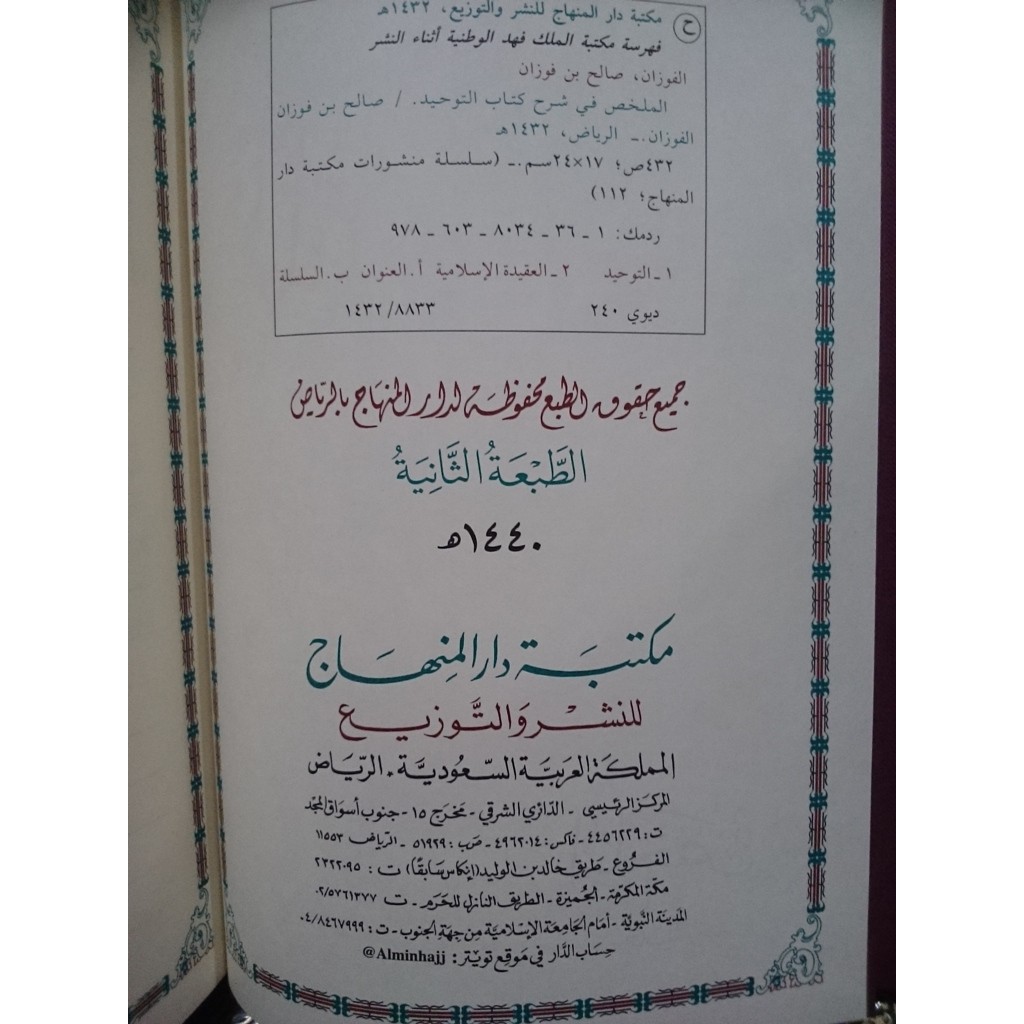 ح مكتبة دار المنهاج للنشر والتوزيع، ١٤٣٢هـ
فهرسة مكتبة الملك فهد الوطنية أثناء النشر
الفوزان، صالح بن فوزان
الملخص في شرح كتاب التوحيد. / صالح بن فوزان
الفوزان.ـ الرياض، ١٤٣٢هـ
٤٣٢ص؛ ١٧×٢٤سم.ـ (سلسلة منشورات مكتبة دار
المنهاج؛ ١١٢)
ردمك: ١ ـ ٣٦ ـ ٨٠٣٤ ـ ٦٠٣ ـ ٩٧٨
١ ـ التوحيد ٢ ـ العقيدة الإسلامية أ. العنوان ب. السلسلة
ديوي ٢٤٠ ١٤٣٢/٨٨٣٣
جميع حقوق الطبع محفوظة لدار المنهاج بالرياض
الطَّبْعَةُ الثَّانِيَةُ
١٤٤٠هـ
مكتبة دار المنهاج
للنشر والتوزيع
المملكة العربية السعودية - الرياض
المركز الرئيسي - الدائري الشرقي - مخرج ١٥ - جنوب أسواق المجد
ت: ٤٤٥٦٢٢٩ - فاكس: ٤٩٦٢٠١٤ - ص ب: ٥١٩٢٩ - الرياض ١١٥٥٣
الفروع - طريق خالد بن الوليد (إنكاس سابقًا) ت: ٢٣٢٢٠٩٥
مكة المكرمة - الجميزة - الطريق النازل للحرم - ت ٠٢/٥٧٦١٣٧٧
المدينة النبوية - أمام الجامعة الإسلامية من جهة الجنوب - ت: ٠٤/٨٤٦٧٩٩٩
حساب الدار في موقع تويتر: @Alminhajj